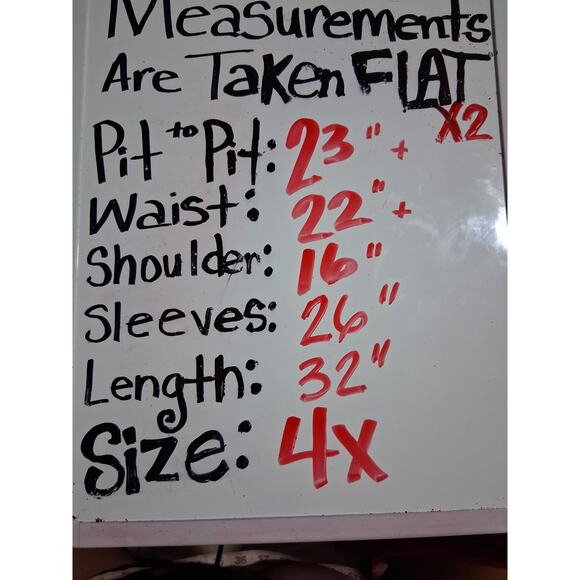 Measurements
Are Taken FLAT
X2
Pit to Pit: 23" +
Waist: 22" +
Shoulder: 16"
Sleeves: 26"
Length: 32"
Size: 4X
36 37